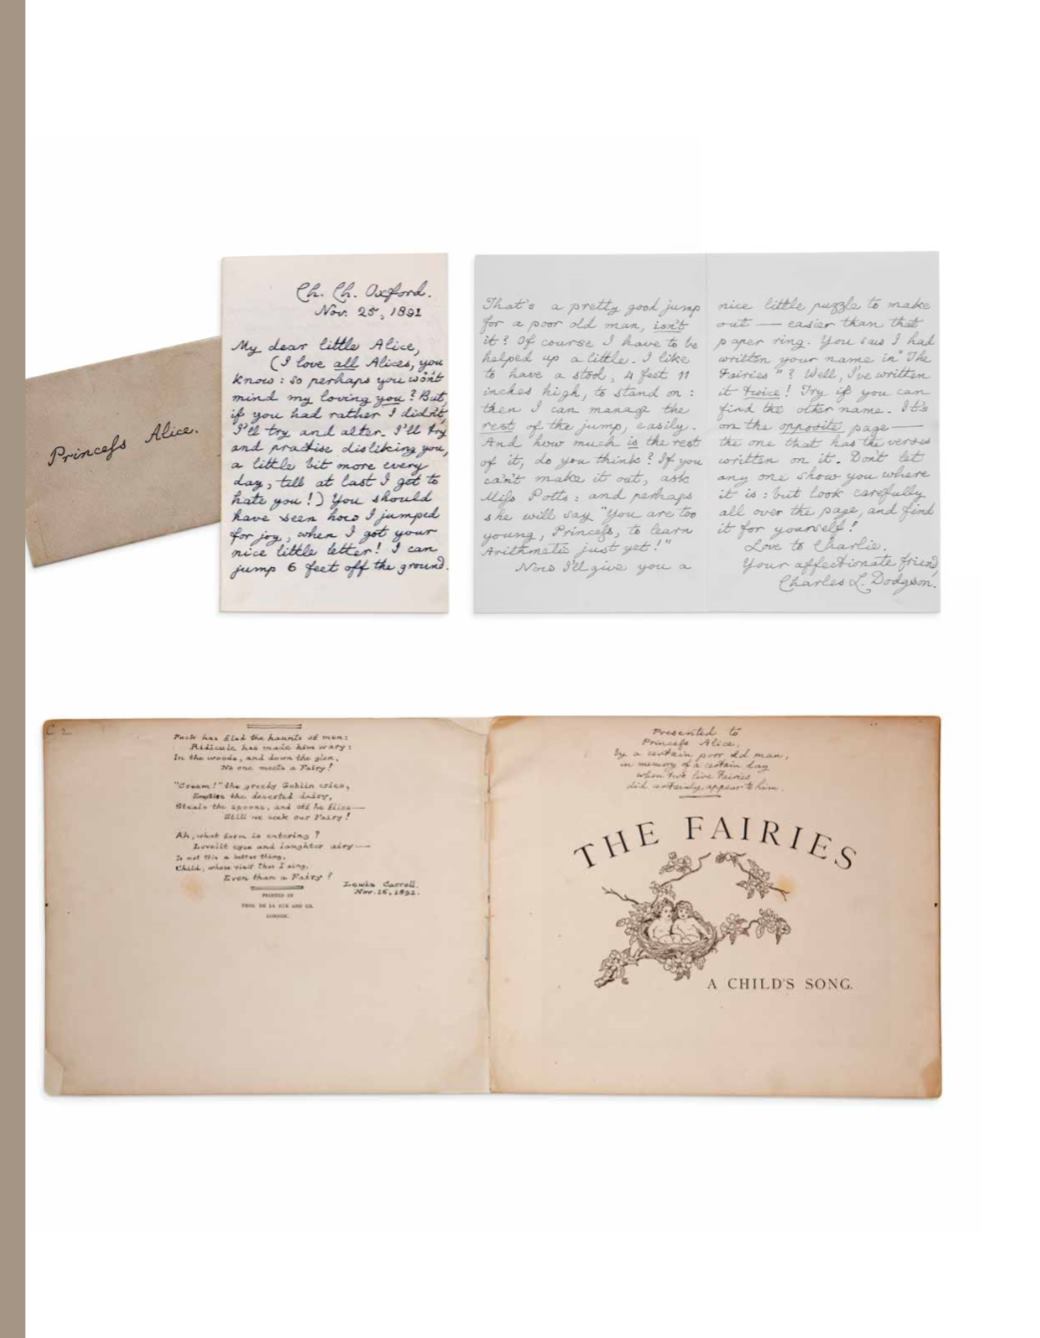 Princess Alice.
Ch. Ch. Oxford.
Nov. 25, 1891
My dear little Alice,
(I love all Alices, you
know: so perhaps you won't
mind my loving you? But,
if you had rather I didn't,
I'll try and alter. I'll try
and practise disliking you,
a little bit more every
day, till at last I get to
hate you!) You should
have seen how I jumped
for joy, when I got your
nice little letter! I can
jump 6 feet off the ground.
That's a pretty good jump
for a poor old man, isn't
it? Of course I have to be
helped up a little. I like
to have a stool, 4 feet 11
inches high, to stand on:
then I can manage the
rest of the jump, easily.
And how much is the rest
of it, do you think? If you
can't make it out, ask
Miss Potts: and perhaps
she will say "You are too
young, Princess, to learn
Arithmetic just yet!"
Now I'll give you a
nice little puzzle to make
out — easier than that
paper ring. You saw I had
written your name in "The
Fairies"? Well, I've written
it twice! Try if you can
find the other name. It's
on the opposite page —
the one that has the verses
written on it. Don't let
any one show you where
it is: but look carefully
all over the page, and find
it for yourself!
Love to Charlie.
Your affectionate friend,
Charles L. Dodgson.
C 2
Puck has fled the haunts of men:
Ridicule has made him wary:
In the woods, and down the glen,
No one meets a Fairy!
"Cream!" the greedy Goblin cries,
Empties the deserted dairy,
Steals the spoons, and off he flies —
Still we seek our Fairy!
Ah, what form is entering?
Lovelit eyes and laughter airy —
Is not this a better thing,
Child, whose visit thus I sing,
Even than a Fairy?
Lewis Carroll.
Nov. 15, 1891.
PRINTED BY
THOS. DE LA RUE AND CO.
LONDON.
Presented to
Princess Alice,
by a certain poor old man,
in memory of a certain day
when two live Fairies
did certainly appear to him.
THE FAIRIES
A CHILD'S SONG.